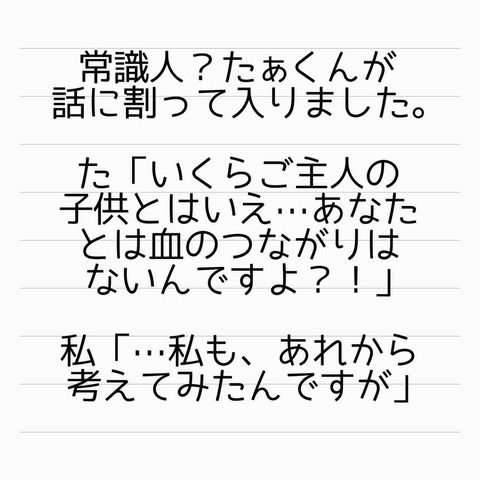 常識人？たぁくんが
話に割って入りました。
た「いくらご主人の
子供とはいえ…あなた
とは血のつながりは
ないんですよ？！」
私「…私も、あれから
考えてみたんですが」